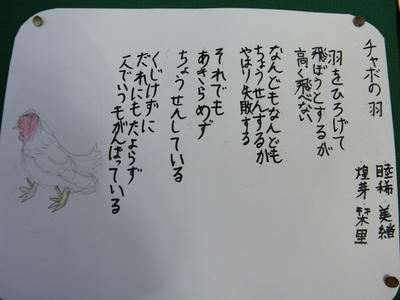 チャボの羽
睦稀 美緒
煌芽 栞里
羽をひろげて
飛ぼうとするが
高く飛べない
なんどもなんども
ちょうせんするが
やはり失敗する
それでも
あきらめず
ちょうせんしている
くじけずに
だれにもたよらず
一人でいつもがんばっている